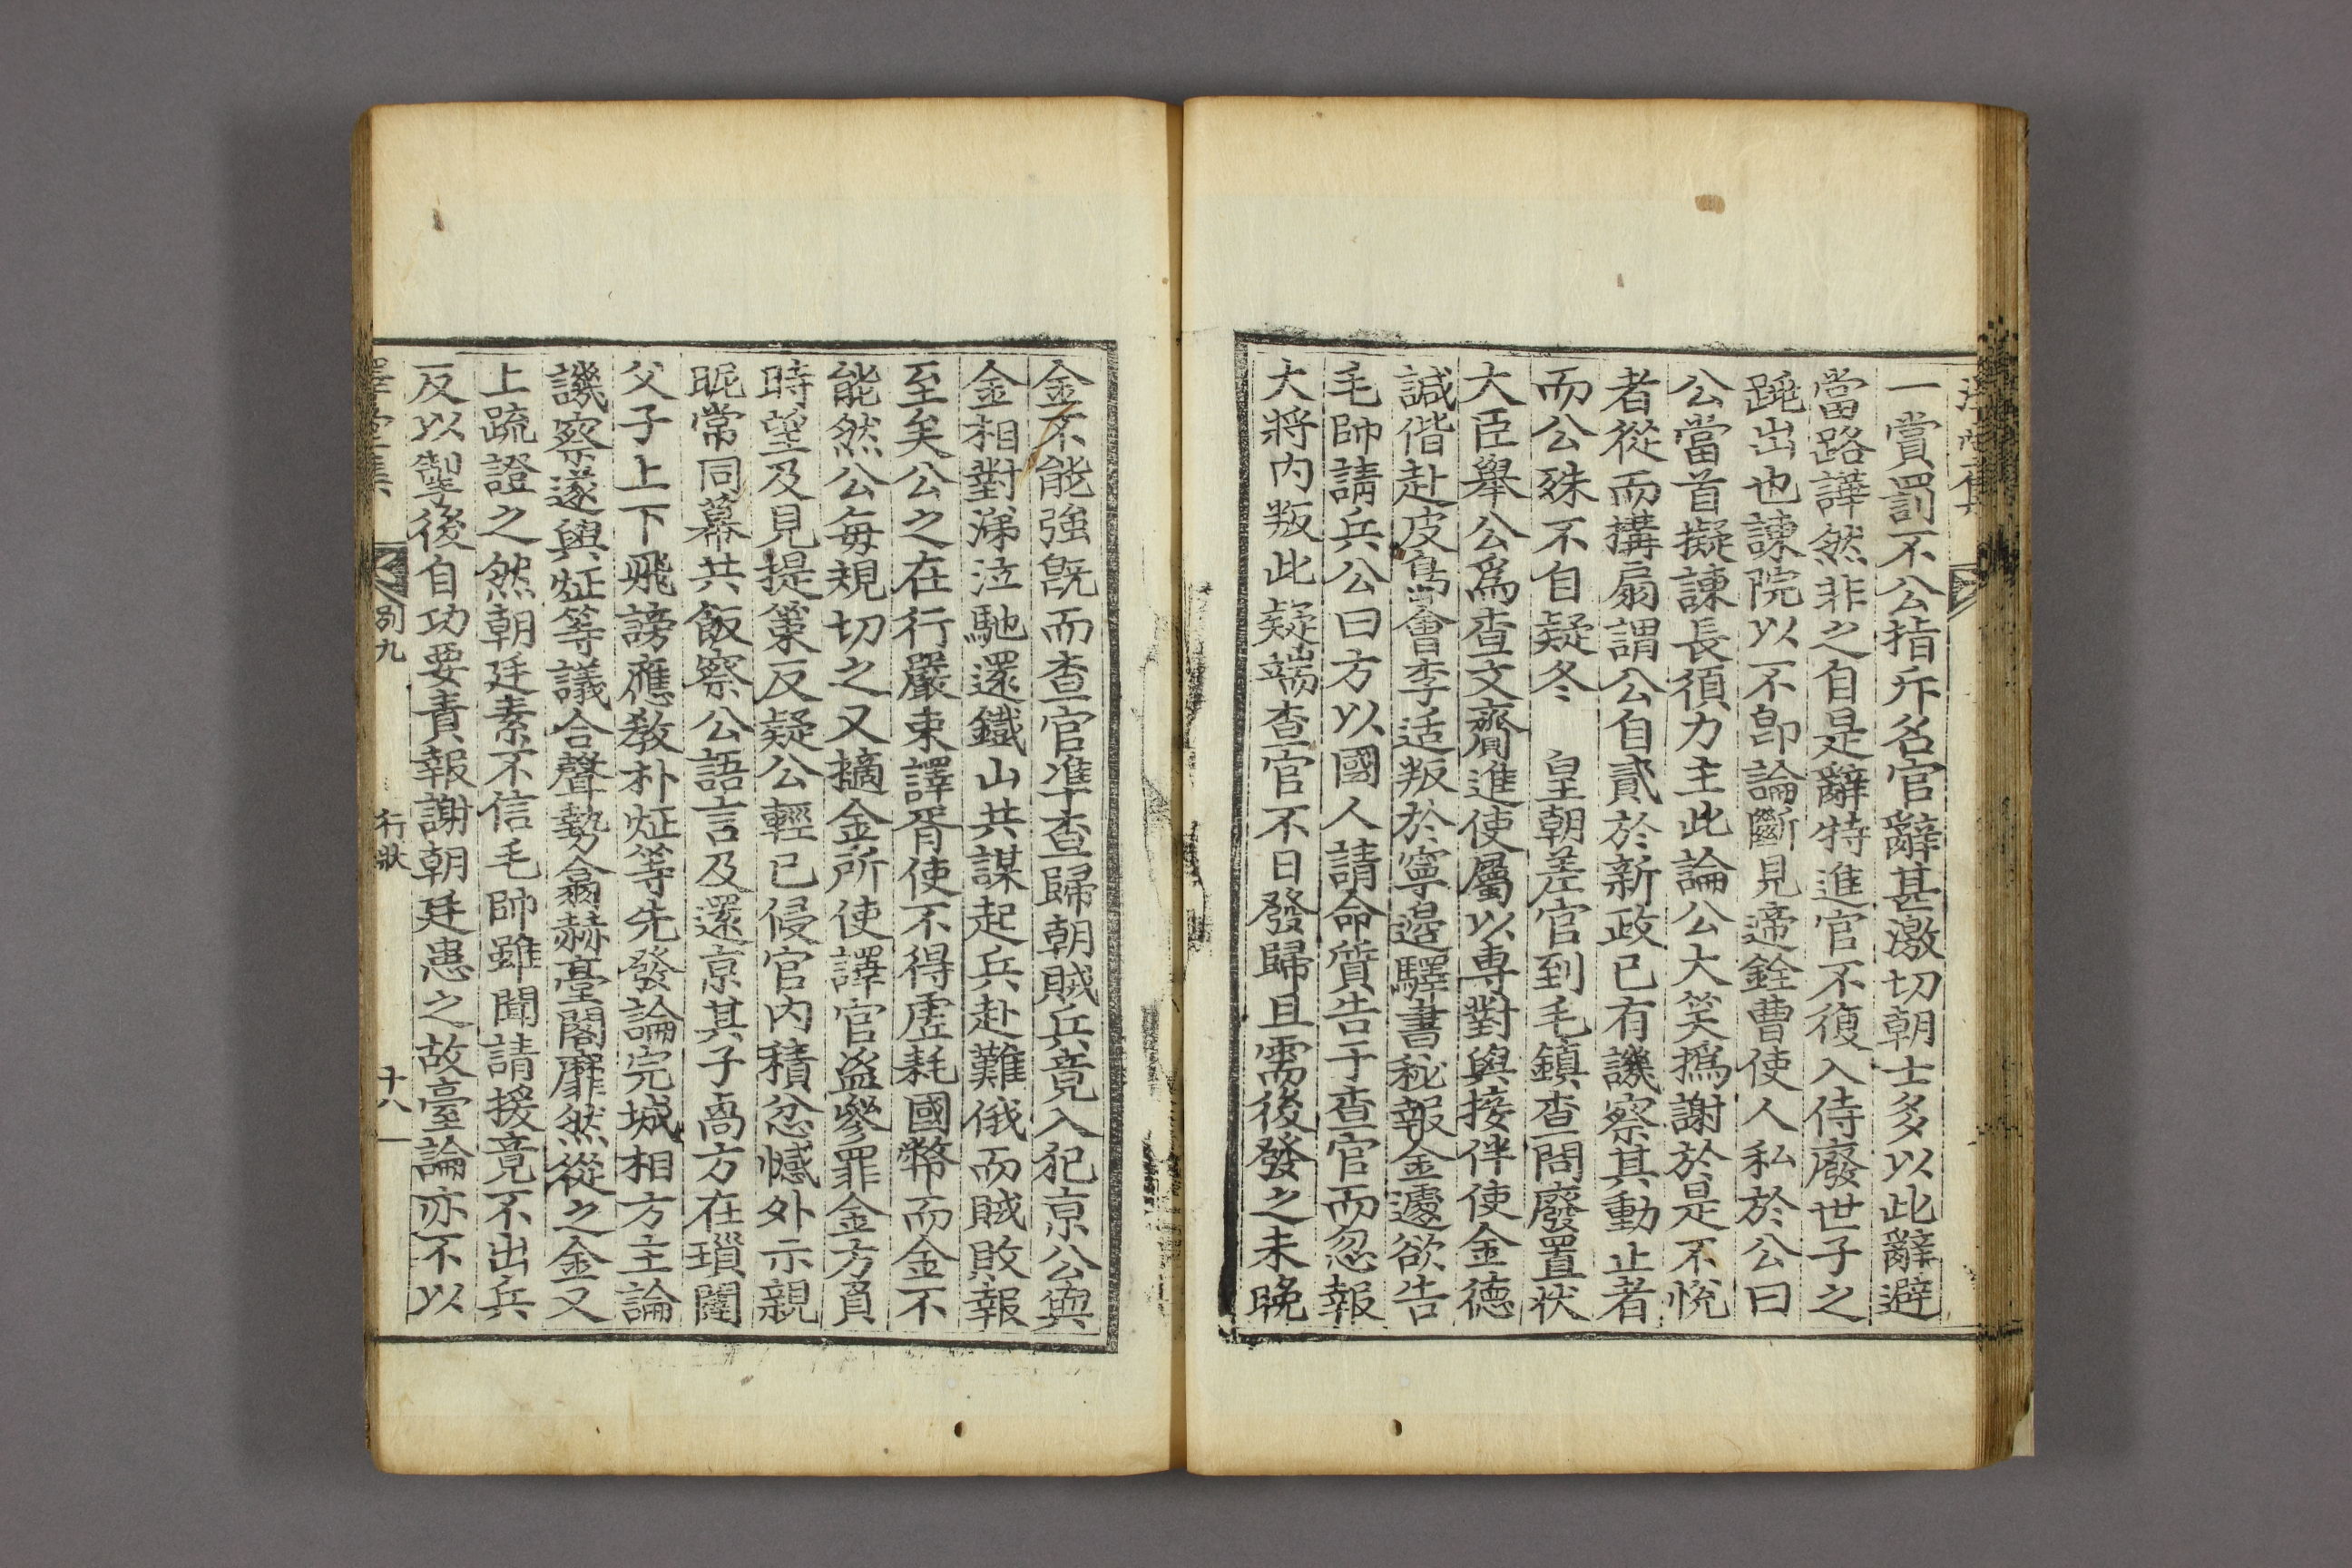 一賞罰不公指斥名官辭甚激切朝士多以此辭避
當路譁然非之自是辭特進官不復入侍廢世子之
踰出也諫院以不卽論斷見遞銓曹使人私於公曰
公當首擬諫長須力主此論公大笑撝謝於是不悅
者從而搆扇謂公自貳於新政已有譏察其動止者
而公殊不自疑冬 皇朝差官到毛鎮查問廢置狀
大臣舉公爲查文齎進使屬以專對與接伴使金德
諴偕赴皮島會李适叛於寧邊驛書秘報金遽欲告
毛帥請兵公曰方以國人請命質告于查官而忽報
大將內叛此疑端查官不日發歸且需後發之未晚
金不能強旣而查官準查歸朝賊兵竟入犯京公與
金相對涕泣馳還鐵山共謀起兵赴難俄而賊敗報
至矣公之在行嚴束譯胥使不得虛耗國幣而金不
能然公每規切之又摘金所使譯官盜參罪金方負
時望及見提筞反疑公輕已侵官內積忿憾外示親
昵常同幕共飯察公語言及還京其子卨方在瑣闥
父子上下飛謗應敎朴炡等先發論完城相方主論
譏察遂與炡等議合聲勢翕赫臺閣靡然從之金又
上疏證之然朝廷素不信毛帥雖聞請援竟不出兵
反以掣後自功要責報謝朝廷患之故臺論亦不以
澤堂集 別九 行狀 十八